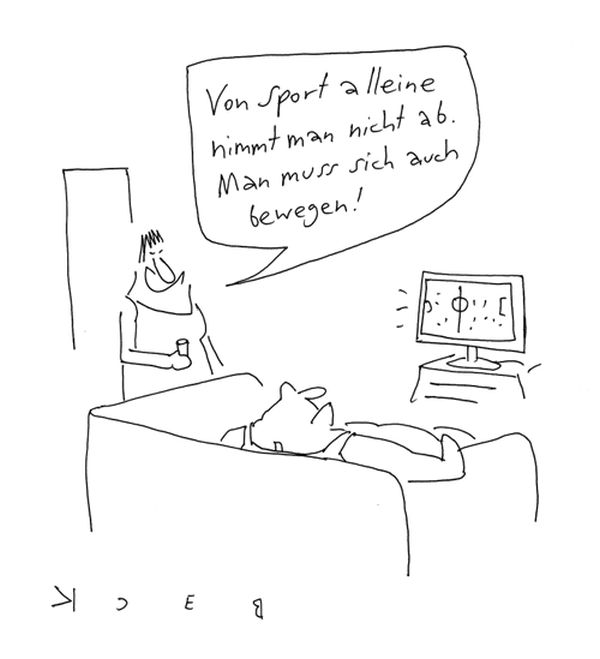 Von Sport alleine
nimmt man nicht ab.
Man muss sich auch
bewegen!
K C E B